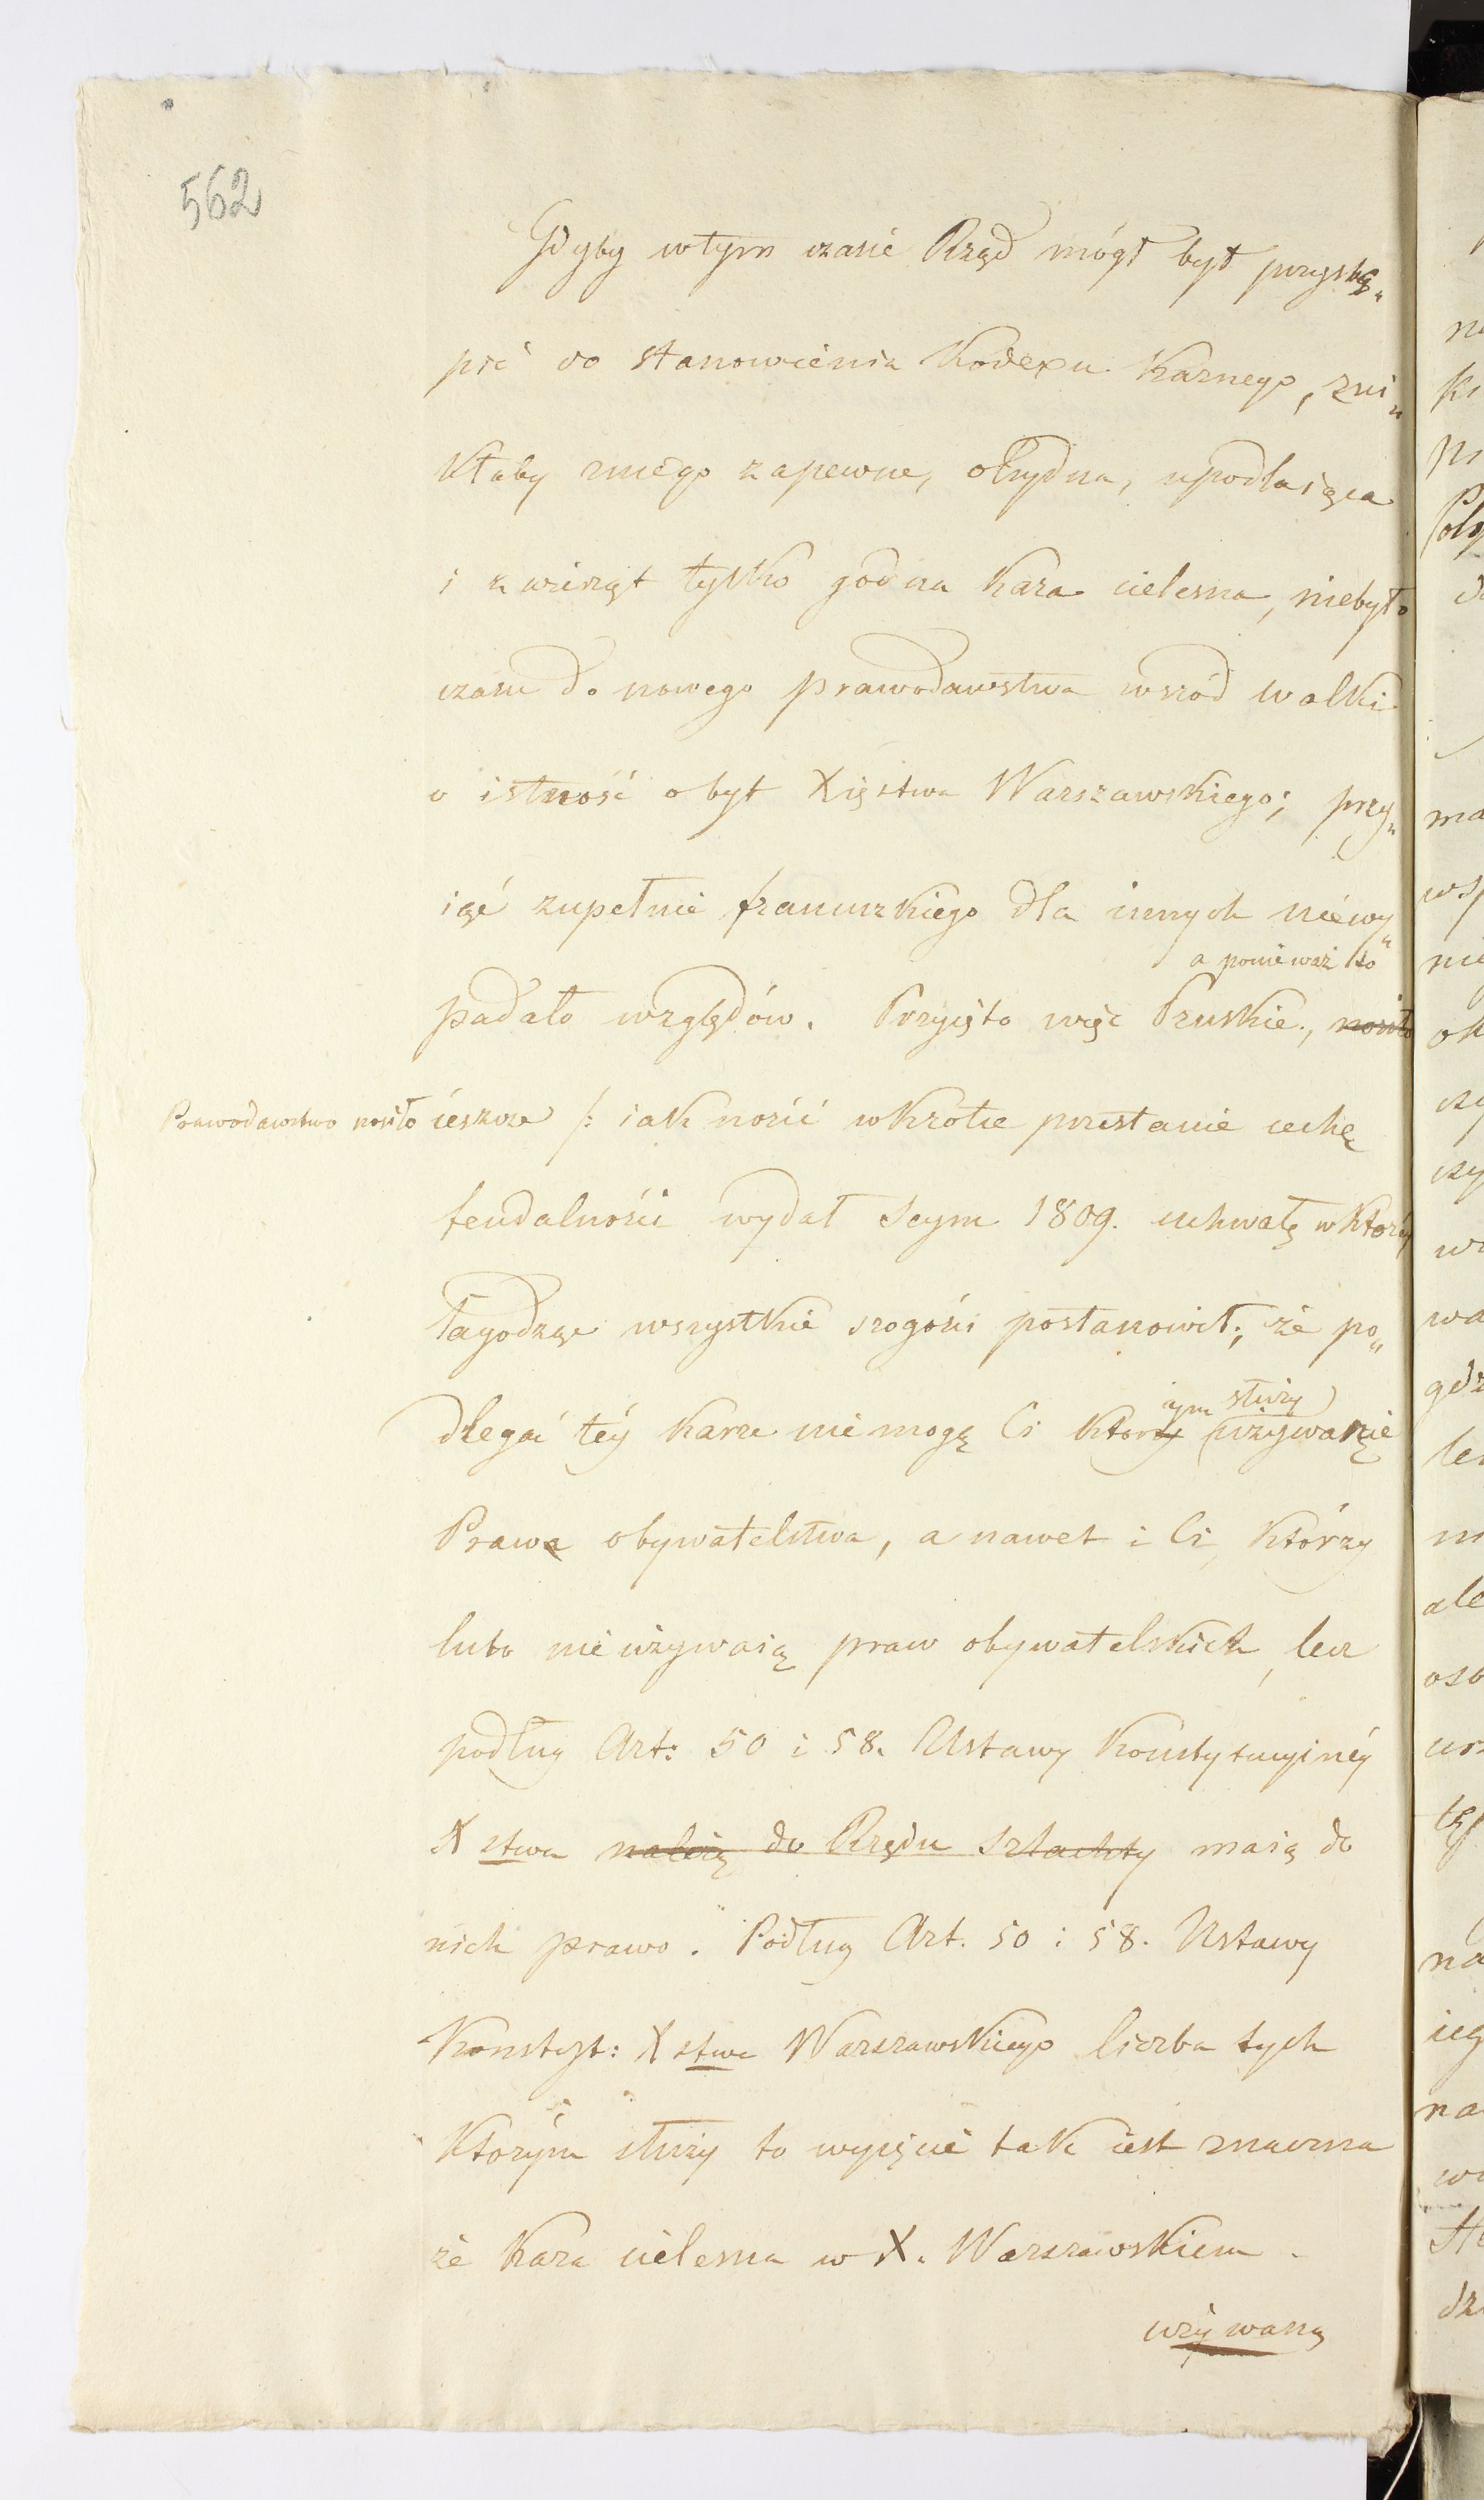 562
Gdyby wtym czasie Rząd mógł był przystę„
pić do stanowienia Kodexu Karnego, zni„
kłaby zniego zapewne, ohydna, upodlaiąca
i zwierząt tylko godna Kara cielesna, niebyło
czasu do nowego prawodawstwa wsród walki
o istność o byt Xięstwa Warszawskiego; przy„
iąć zupełnie francuzkiego dla innych niewy„
a ponieważ to
padało względów. Przyięto więc Pruskie, nosiło
Prawodawstwo nosiło ieszcze /: iak nosić wkrótce przestanie cechę
feudalności wydał Seym 1809. uchwałę w którey
łagodząc wszystkie srogości postanowił, że po„
iym służy
dlegać téy karze nie mogą Ci którzy używanie
Prawa obywatelstwa, a nawet i Ci, którzy
lubo nie używaią praw obywatelskich, lecz
podług Art: 50 i 58. Ustawy Konstytucyinéy
Xstwa należą do Rzędu szlachty maią do
nich prawo. Podług Art. 50 i 58. Ustawy
Konstyt: Xstwa Warszawskiego liczba tych
którym służy to wyięcie tak iest znaczna
że Kara cielesna w X. Warszawskiem
używaną